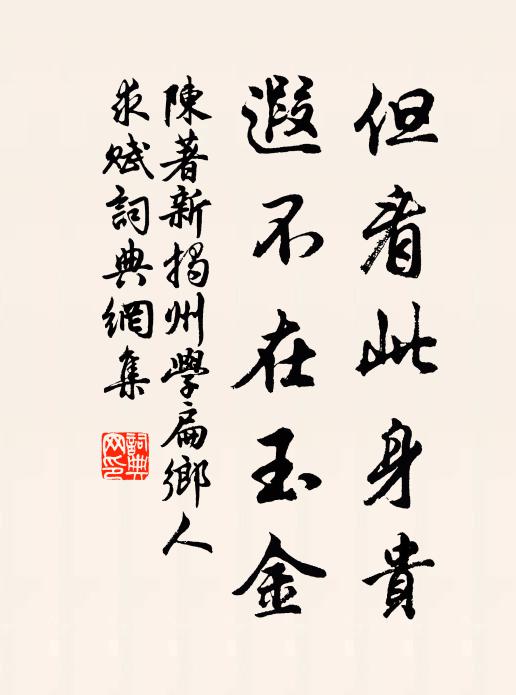 但看此身貴
遐不在玉金
陳著新揭州學扁鄉人
求賦詞典網集
詞典
网印